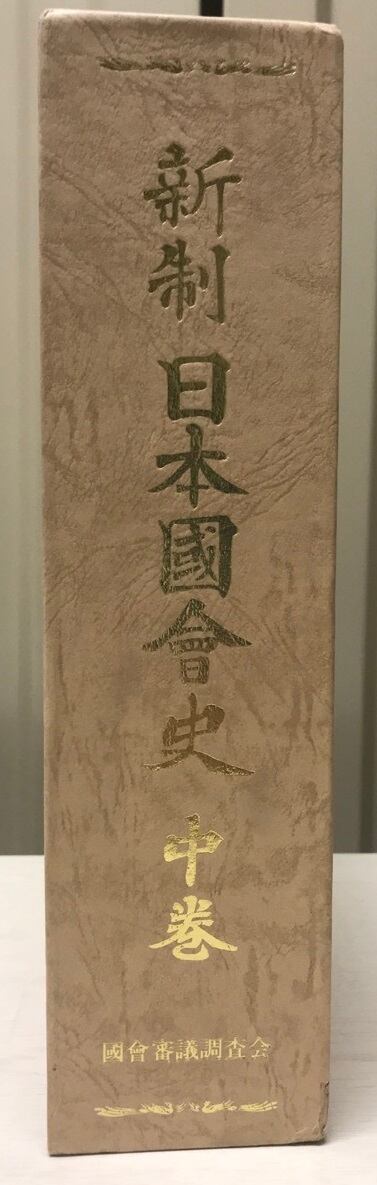 新制 日本國會史 中巻
國會審議調査会